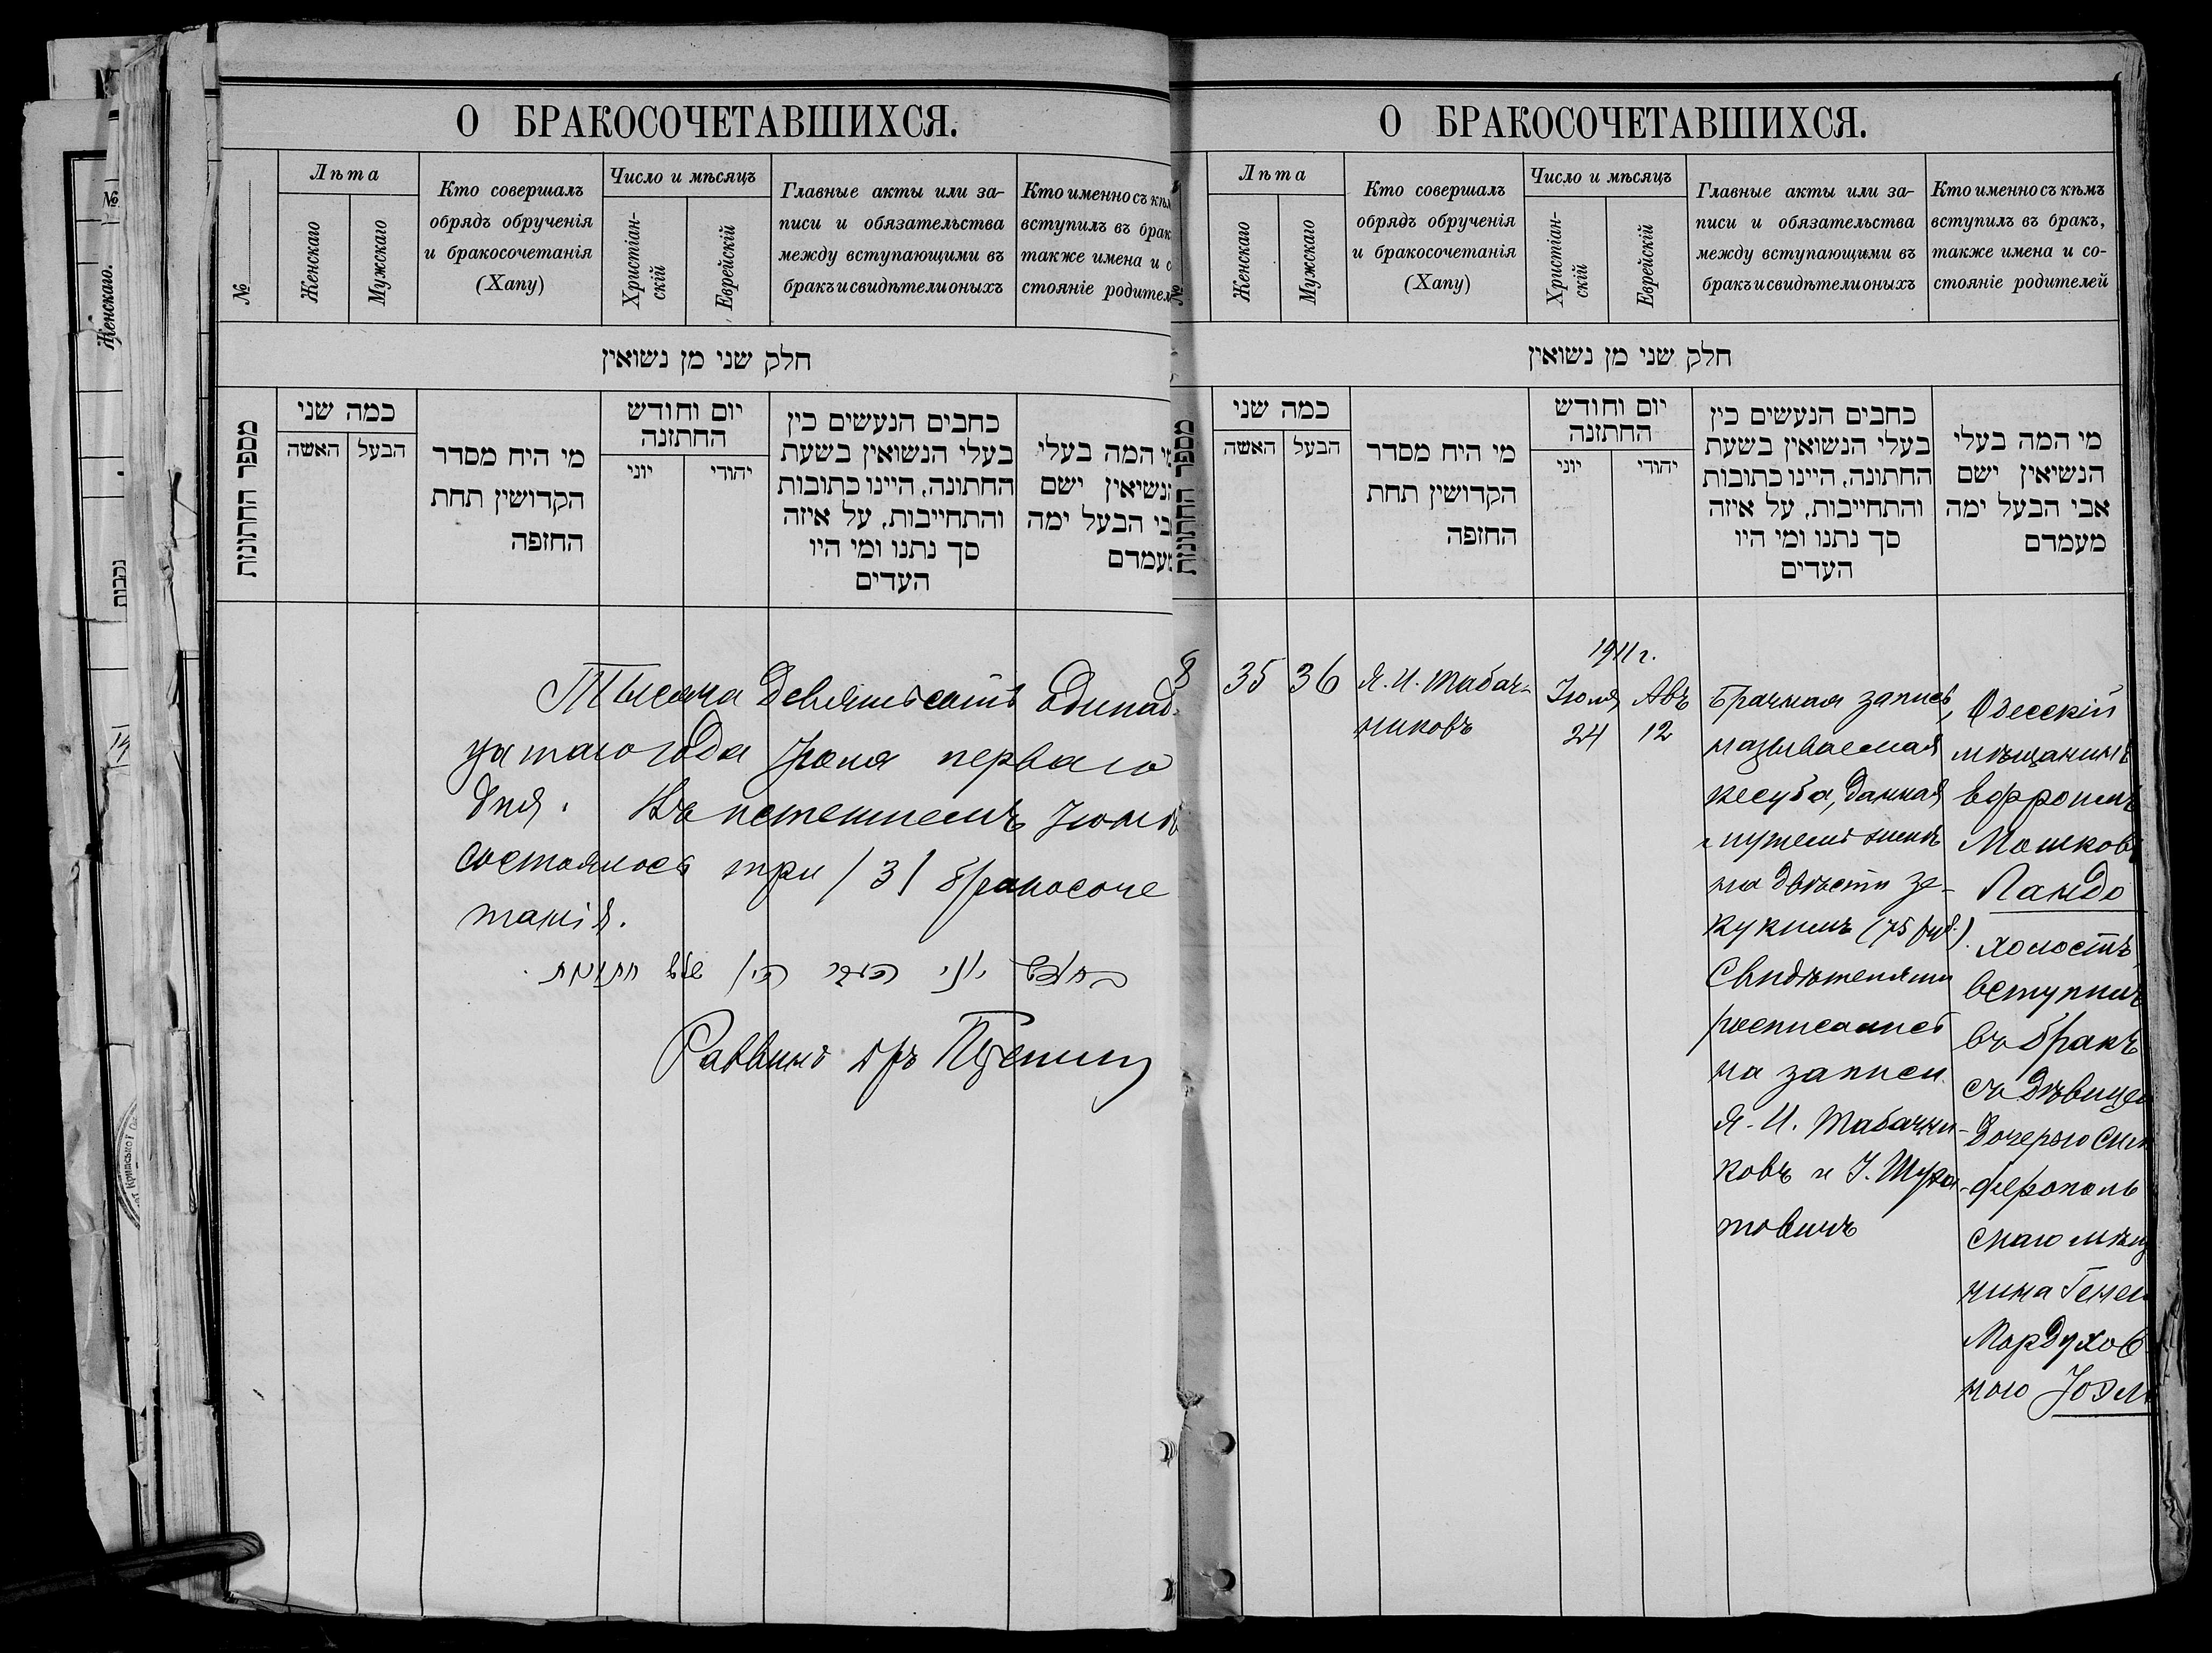 О БРАКОСОЧЕТАВШИХСЯ.
№
Лѣта
Женскаго
Мужскаго
Кто совершалъ
обрядъ обрученія
и бракосочетанія
(Хапу)
Число и мѣсяцъ
Христіан-
скій
Еврейскій
Главные акты или за-
писи и обязательства
между вступающими въ
бракъ и свидѣтели оныхъ
Кто именно съ кѣм
вступилъ въ брак
также имена и с
стояніе родител
חלק שני מן נשואין
מספר החתונות
כמה שני
האשה
הבעל
מי היח מסדר
הקדושין תחת
החזפה
יום וחודש
החתזנה
יוני
יהודי
כחבים הנעשים כין
בעלי הנשואין בשעת
החתונה, היינו כתובות
והתחייבות, על איזה
סך נתנו ומי היו
העדים
י המה בעלי
הנשיאין ישם
בי הבעל ימה
מעמדם
Тысяча девятьсотъ одинад-
цатаго года Іюля перваго
дня. Въ истекшемъ Іюнѣ
состоялось три /3/ бракосоче
танія.
Раввинъ д-ръ
О БРАКОСОЧЕТАВШИХСЯ.
№
Лѣта
Женскаго
Мужскаго
Кто совершалъ
обрядъ обрученія
и бракосочетанія
(Хапу)
Число и мѣсяцъ
Христіан-
скій
Еврейскій
Главные акты или за-
писи и обязательства
между вступающими въ
бракъ и свидѣтели оныхъ
Кто именно съ кѣмъ
вступилъ въ бракъ,
также имена и со-
стояніе родителей
חלק שני מן נשואין
מספר החתונות
כמה שני
האשה
הבעל
מי היח מסדר
הקדושין תחת
החזפה
יום וחודש
החתזנה
יוני
יהודי
כחבים הנעשים כין
בעלי הנשואין בשעת
החתונה, היינו כתובות
והתחייבות, על איזה
סך נתנו ומי היו
העדים
מי המה בעלי
הנשיאין ישם
אבי הבעל ימה
מעמדם
8
35
36
Я. И. Табач-
никовъ
1911 г.
Іюля
24
Авъ
12
Брачная запись,
называемая
кесуба, данная
мужемъ женѣ
на двѣсти зе-
кукимъ (75 руб.).
Свидѣтелями
росписались
на записи
Я. И. Табачни-
ковъ и І. Шуха-
товичъ
Одесскій
мѣщанинъ
Мошков
Ландо
холостъ,
вступилъ
въ бракъ
съ дѣвицей
дочерью Сим
ферополь
скаго мѣщ
нина
Мордухов
ною
Женскаго.
№